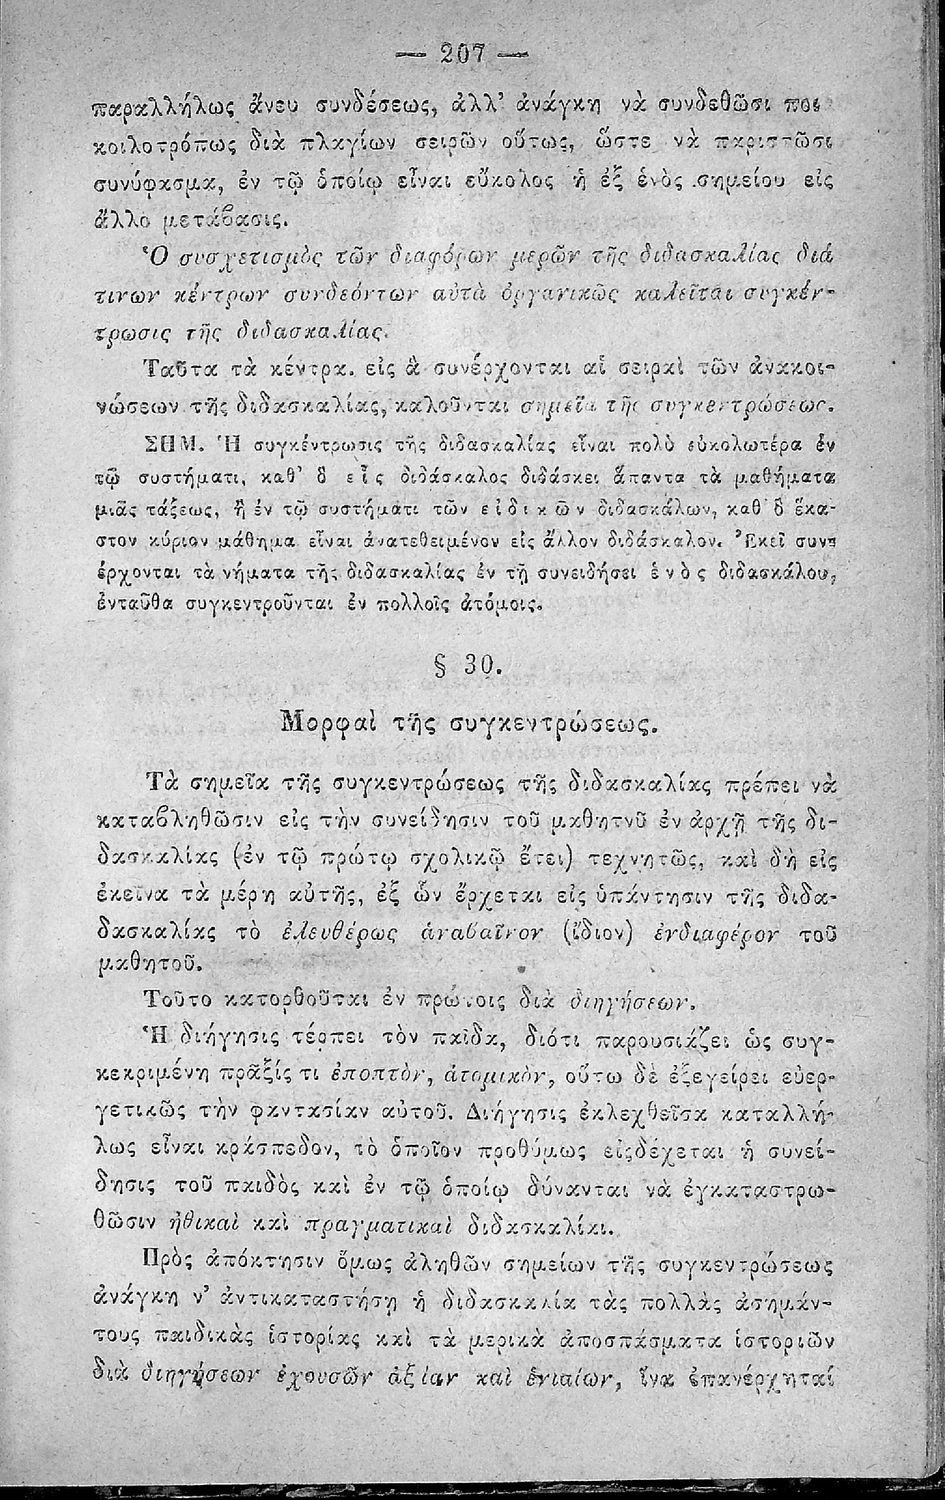 — 207 —
παραλλήλως ἄνευ συνδέσεως, ἀλλ’ ἀνάγκη νὰ συνδεθῶσι ποι
κοιλοτρόπως διὰ πλαγίων σειρῶν οὕτως, ὥστε νὰ παριστῶσι
συνύφασμα, ἐν τῷ ὁποίῳ εἶναι εὔκολος ἡ ἐξ ἑνὸς σημείου εἰς
ἄλλο μετάβασις.
Ὁ συσχετισμὸς τῶν διαφόρων μερῶν τῆς διδασκαλίας διά
τινων κέντρων συνδεόντων αὐτὰ ὀργανικῶς καλεῖται συγκέν-
τρωσις τῆς διδασκαλίας.
Ταῦτα τὰ κέντρα. εἰς ἃ συνέρχονται αἱ σειραὶ τῶν ἀνακοι-
νώσεων τῆς διδασκαλίας, καλοῦνται σημεῖα τῆς συγκεντρώσεως.
ΣΗΜ. Ἡ συγκέντρωσις τῆς διδασκαλίας εἶναι πολὺ εὐκολωτέρα ἐν
τῷ συστήματι, καθ’ ὃ εἷς διδάσκαλος διδάσκει ἅπαντα τὰ μαθήματα
μιᾶς τάξεως, ἢ ἐν τῷ συστήματι τῶν εἰδικῶν διδασκάλων, καθ’ ὃ ἕκα-
στον κύριον μάθημα εἶναι ἀνατεθειμένον εἰς ἄλλον διδάσκαλον. Ἐκεῖ συν-
έρχονται τὰ νήματα τῆς διδασκαλίας ἐν τῇ συνειδήσει ἑνὸς διδασκάλου,
ἐνταῦθα συγκεντροῦνται ἐν πολλοῖς ἀτόμοις.
§ 30.
Μορφαὶ τῆς συγκεντρώσεως.
Τὰ σημεῖα τῆς συγκεντρώσεως τῆς διδασκαλίας πρέπει νὰ
καταβληθῶσιν εἰς τὴν συνείδησιν τοῦ μαθητοῦ ἐν ἀρχῇ τῆς δι-
δασκαλίας (ἐν τῷ πρώτῳ σχολικῷ ἔτει) τεχνητῶς, καὶ δὴ εἰς
ἐκεῖνα τὰ μέρη αὐτῆς, ἐξ ὧν ἔρχεται εἰς ὑπάντησιν τῆς διδα-
δασκαλίας τὸ ἐλευθέρως ἀναβαῖνον (ἴδιον) ἐνδιαφέρον τοῦ
μαθητοῦ.
Τοῦτο κατορθοῦται ἐν πρώτοις διὰ διηγήσεων.
Ἡ διήγησις τέρπει τὸν παῖδα, διότι παρουσιάζει ὡς συγ-
κεκριμένη πρᾶξίς τι ἐποπτὸν, ἀτομικὸν, οὕτω δὲ ἐξεγείρει εὐερ-
γετικῶς τὴν φαντασίαν αὐτοῦ. Διήγησις ἐκλεχθεῖσα καταλλή-
λως εἶναι κράσπεδον, τὸ ὁποῖον προθύμως εἰςδέχεται ἡ συνεί-
δησις τοῦ παιδὸς καὶ ἐν τῷ ὁποίῳ δύνανται νὰ ἐγκαταστρω-
θῶσιν ἠθικαὶ καὶ πραγματικαὶ διδασκαλίαι.
Πρὸς ἀπόκτησιν ὅμως ἀληθῶν σημείων τῆς συγκεντρώσεως
ἀνάγκη ν’ ἀντικαταστήσῃ ἡ διδασκαλία τὰς πολλὰς ἀσημάν-
τους παιδικὰς ἱστορίας καὶ τὰ μερικὰ ἀποσπάσματα ἱστοριῶν
διὰ διηγήσεων ἐχουσῶν ἀξίαν καὶ ἑνιαίων, ἵνα ἐπανέρχηταί